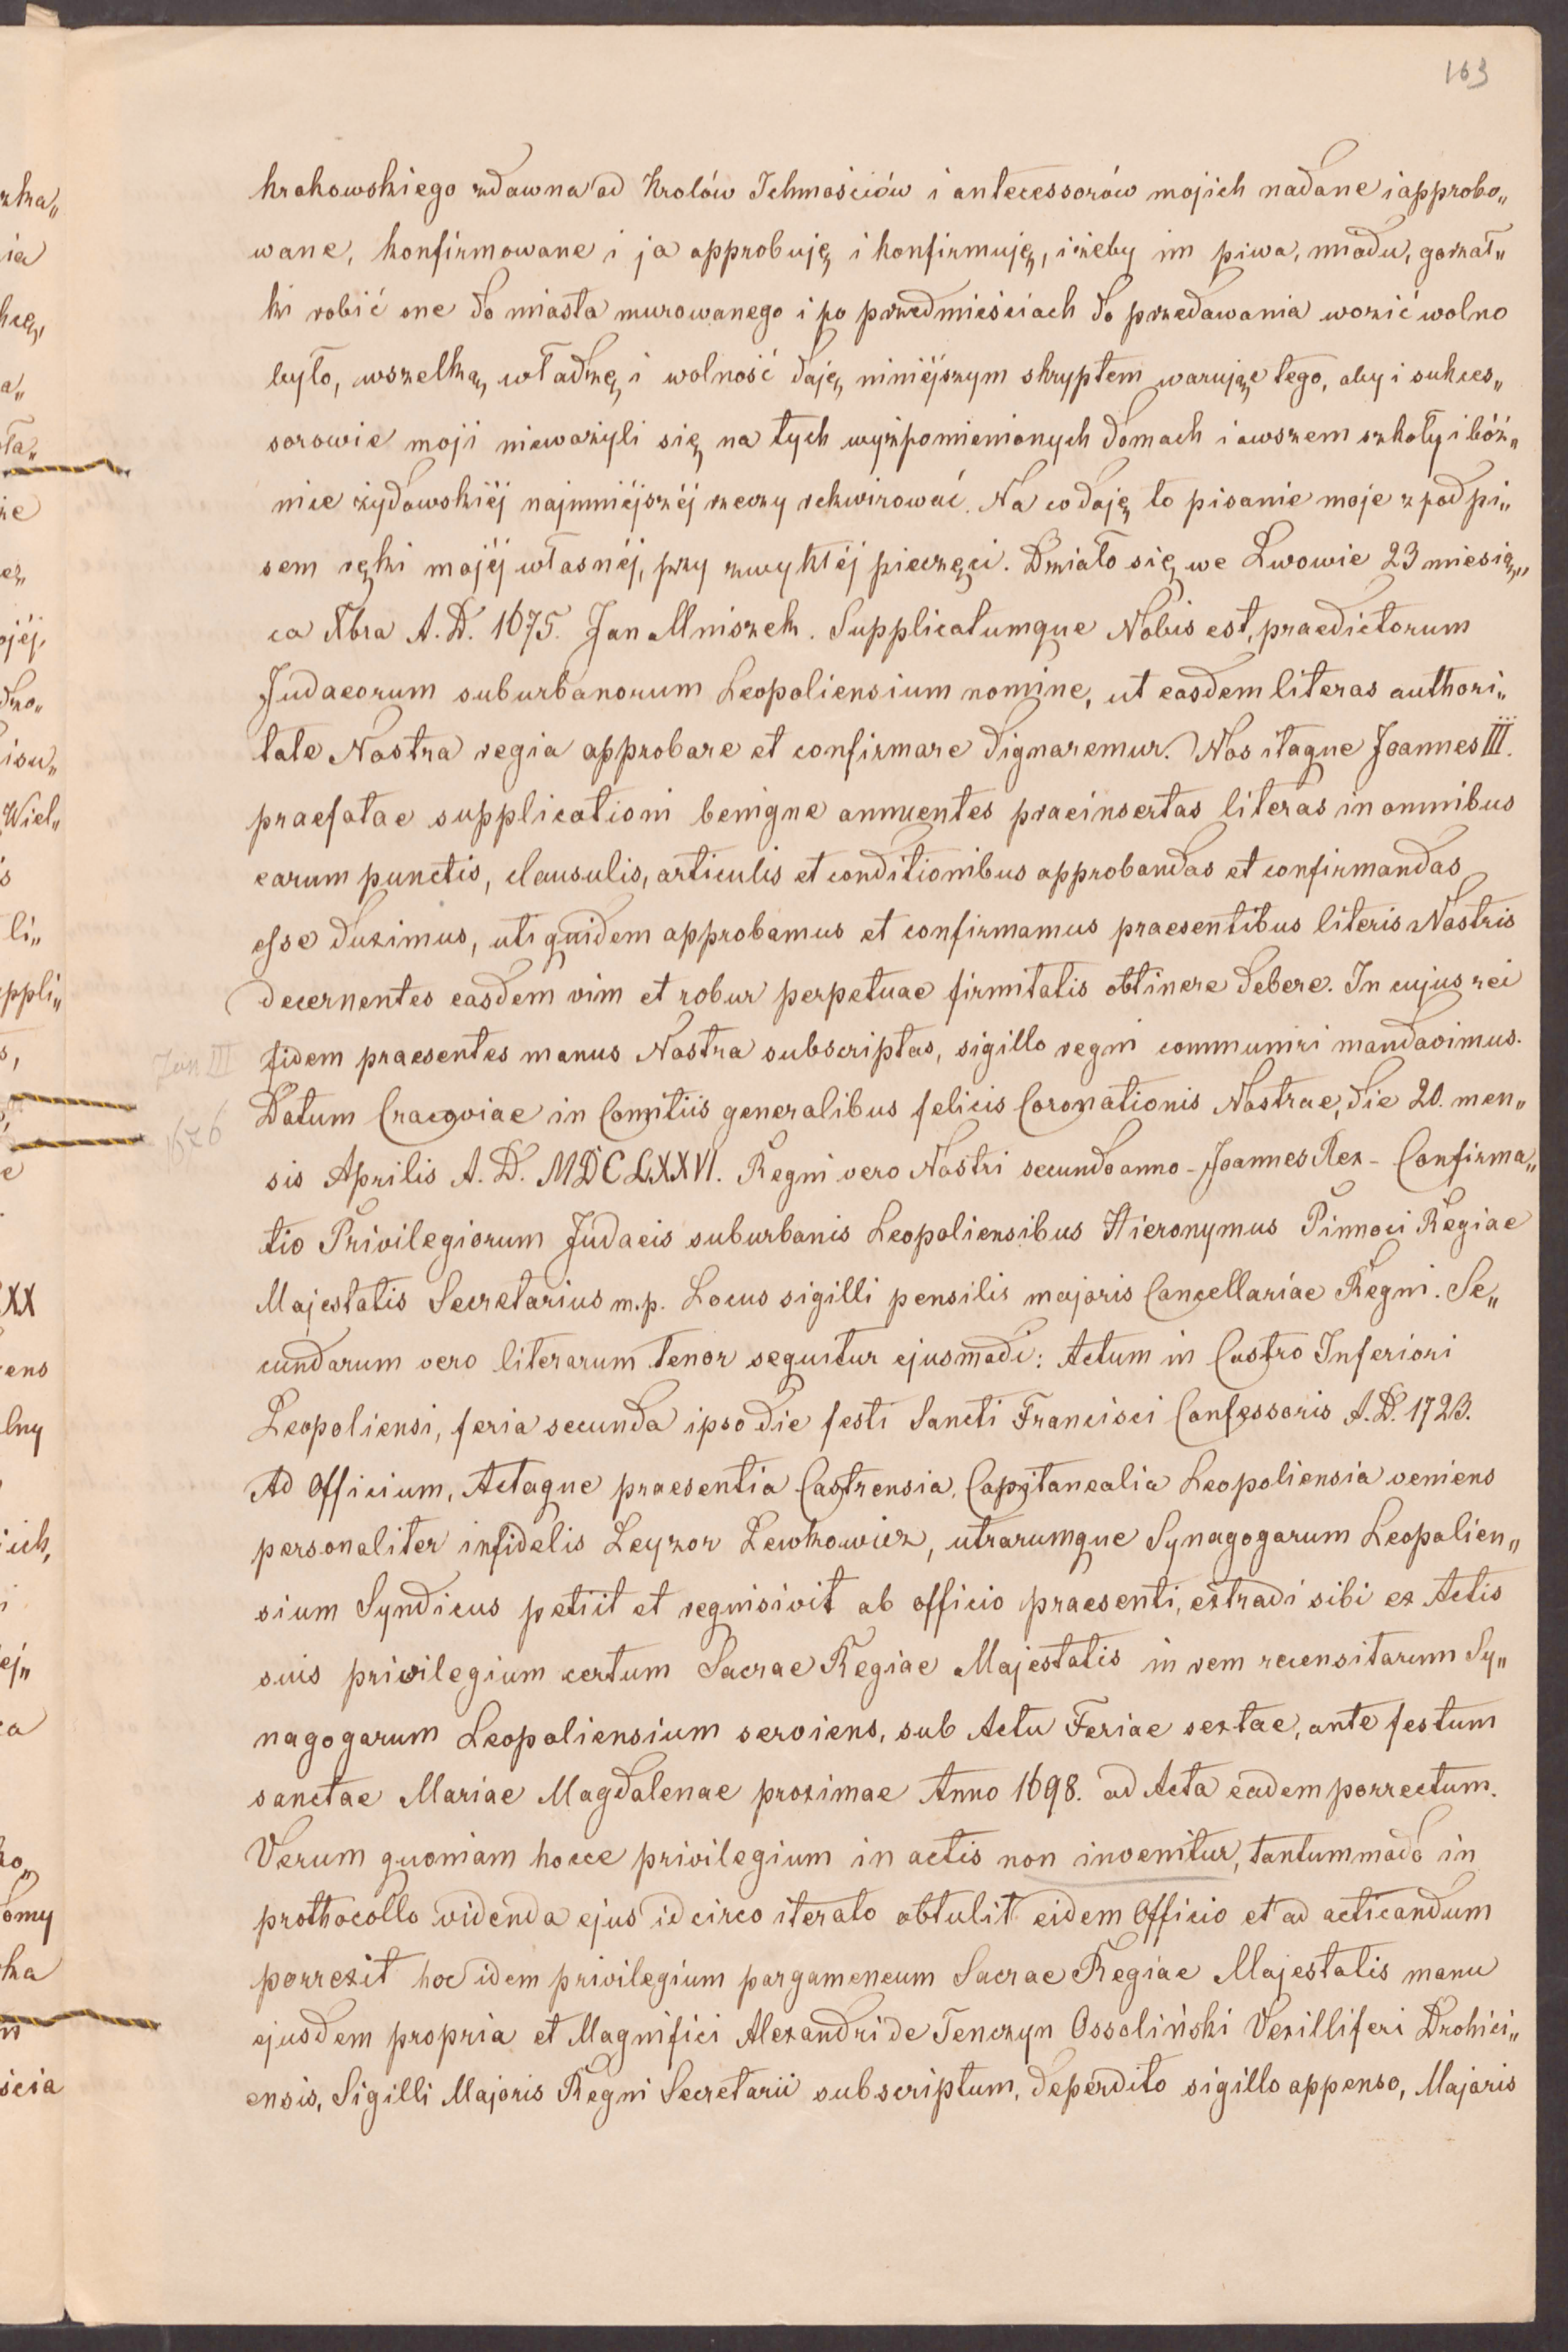 163
krakowskiego zdawna od Krolów Ichmościów i antecessorów mojich nadane i approbo„
wane, konfirmowane i ja approbuję i konfirmuję, iżeby im piwa, miodu, gorzał„
ki robić one do miasta murowanego i po przedmieściach do przedawania wozić wolno
było, wszelką władzę i wolność daję niniéjszym skryptem warując tego, aby i sukces„
sorowie moji nieważyli się na tych wyżpomienionych domach i owszem szkoły i bóż„
nice żydowskiéj najmniéjszéj rzeczy rekwirować. Na co daję to pisanie moje z podpi„
sem ręki mojéj własnéj, przy zwykłéj pieczęci. Działo się we Lwowie 23 miesią„
ca Xbra A. D. 1675. Jan Mniszek. Supplicatumque Nobis est, praedictorum
Judaeorum suburbanorum Leopoliensium nomine, ut easdem literas authori„
tate Nostra regia approbare et confirmare dignaremur. Nos itaque Joannes III.
praefatae supplicationi benigne annuentes praeinsertas literas in omnibus
earum punctis, clausulis, articulis et conditionibus approbandas et confirmandas
esse duximus, uti quidem approbamus et confirmamus praesentibus literis Nostris
decernentes easdem vim et robur perpetuae firmitatis obtinere debere. In cujus rei
Jan III fidem praesentes manus Nostra subscriptas, sigillo regni communiri mandavimus.
1676 Datum Cracoviae in Comitiis generalibus felicis Coronationis Nostrae, die 20. men„
sis Aprilis A. D. MDCLXXVI. Regni vero Nostri secundo anno - Joannes Rex - Confirma„
tio Privilegiorum Judaeis suburbanis Leopoliensibus Hieronymus Pinnoci Regiae
Majestatis Secretarius m.p. Locus sigilli pensilis majoris Cancellariae Regni. Se„
cundarum vero literarum tenor sequitur ejusmodi: Actum in Castro Inferiori
Leopoliensi, feria secunda ipso die festi Sancti Francisci Confessoris A. D. 1723.
Ad Officium, Actaque praesentia Castrensia, Capitanealia Leopoliensia veniens
personaliter infidelis Leyzor Lewkowicz, utrarumque Synagogarum Leopolien„
sium Syndicus petiit et requisivit ab officio praesenti, extradi sibi ex Actis
suis privilegium certum Sacrae Regiae Majestatis in rem recensitarum Sy„
nagogarum Leopoliensium serviens, sub Actu Feriae sextae, ante festum
sanctae Mariae Magdalenae proximae Anno 1698. ad Acta eadem porrectum.
Verum quoniam hocce privilegium in actis non invenitur, tantummodo in
prothocollo videnda ejus idcirco iterato obtulit eidem Officio et ad acticandum
porrexit hoc idem privilegium pargameneum Sacrae Regiae Majestatis manu
ejusdem propria et Magnifici Alexandri de Tenczyn Ossoliński Vexilliferi Drohici„
ensis, Sigilli Majoris Regni Secretarii subscriptum, deperdito sigillo appenso, Majoris